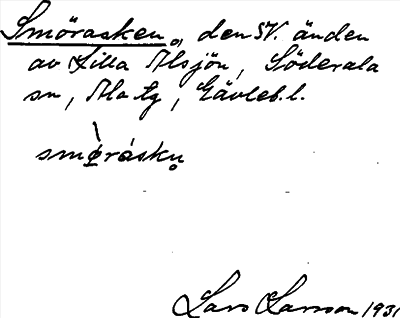 Smörasken, den SV. änden
av Lilla Alsjön, Söderala
sn, Ala tg, Gävleb.l.
smøráskn̥
Lars Larsson 1931